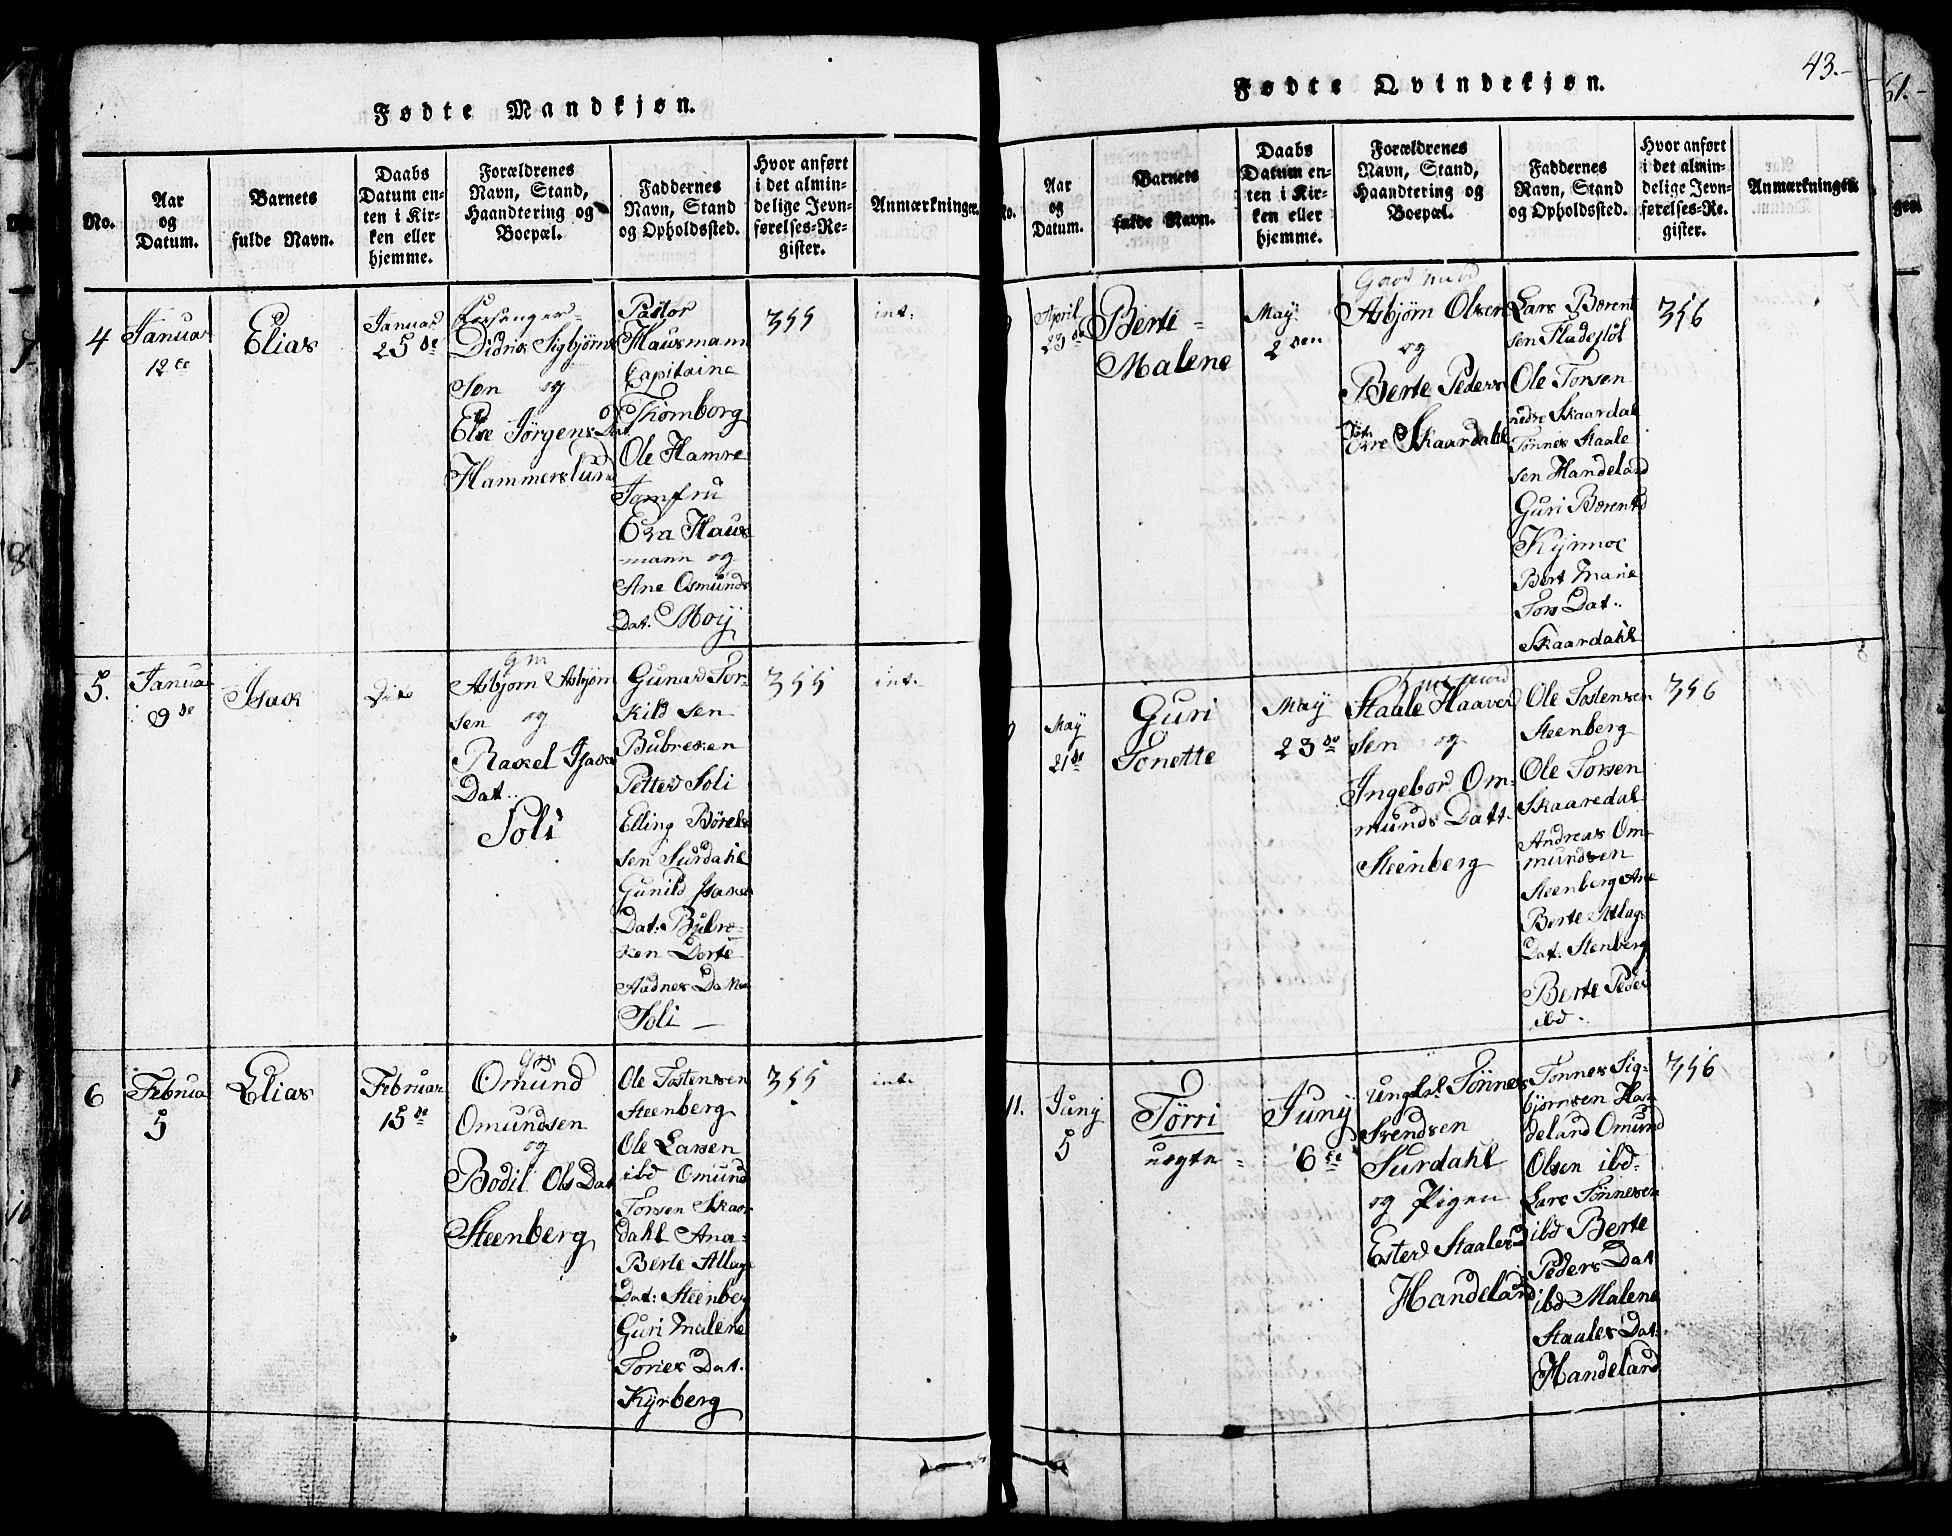 Fødte Mandkjøn.
No.
Aar
og
Datum.
Barnets
fulde Navn.
Daabs
Datum en-
ten i Kir-
ken eller
hjemme.
Forældrenes
Navn, Stand,
Haandtering og
Boepæl.
Faddernes
Navn, Stand
og Opholdssted.
Hvor anført
i det almin-
delige Jevn-
førelses-Re-
gister.
Anmærkninger.
4
Januar
12te
Elias
Januar
25de
Forsanger
Didrik Sigbjørns
Søn og
Else Jørgens Dat
Hammerslund
Pastor
Hausmann
Capitaine
Thomborg
Ole Hamre
Jomfru
Eva Haus
mann og
Ane Osmunds
Dat. Moij
355
int.
5.
Januar
9de
Isak
Dito
Gm
Asbjørn Asbjørn
sen og
Rakel Isaks
Dat..
Soli
Gunar Tor-
kild sen
Bubreken
Petter Soli
Elling Børels
sen Surdahl
Gunild Isaks
Dat: Bubre-
ken Dorte
Aadnes Datter
Soli –
355
int.
6
Februar
5
Elias
Februar
15de
Gm
Omund
Omundsen
og
Bodil Ols Dat
Steenberg
Ole Tostensen
Steenberg
Ole Larsen
ibd Omund
Torsen Skaar
dahl Ana-
Berte Atlags
Dat: Steenberg
Guri Malene
Tories Dat.
Kyrberg
355
int.
Fødte Qvindekjøn.
43.-
61.-
Aar
og
Datum.
Barnets
fulde Navn.
Daabs
Datum en-
ten i Kir-
ken eller
hjemme.
Forældrenes
Navn, Stand,
Haandtering og
Boepæl.
Faddernes
Navn, Stand
og Opholdssted.
Hvor anført
i det almin-
delige Jevn-
førelses-Re-
gister.
Anmærkninger.
April
23de
Berte-
Malene
May
2den
Gaardmand
Asbjørn Olsen
og
Berte Peders
Dat.
Øvre Skaardahl
Lars Børent
sen Fladesløt
Ole Torsen
nedre Skaardal
Tønnes Staale
sen Handeland
Guri Børents
Kyrmoe
Bert Marie
Tors Dat..
Skaardahl
356
May
21de
Guri
Tonette
May
23de
Staale Haaver
sen og
Ingebor Om-
munds Datt.
Steinberg
Ole Tostensen
Steenberg
Ole Torsen
Skaaredal
Andreas Om-
mundsen
Steenberg Ane
Berte Atlags
Dat. Stenberg
Berte Peder
ibd.
356
11.
Juny
5
Törri
uegte
Juny
6te
Ungkrl Tönnes
Svendsen
Surdahl
og Pigen
Ester Staalesd
Handeland
Tönnes Sig-
björnsen Han
deland Omund
Olsen ibd-
Lars Tönnesen
ibd Berte
Peders Dat
ibd Malene
Staales Dat.
Handeland
356